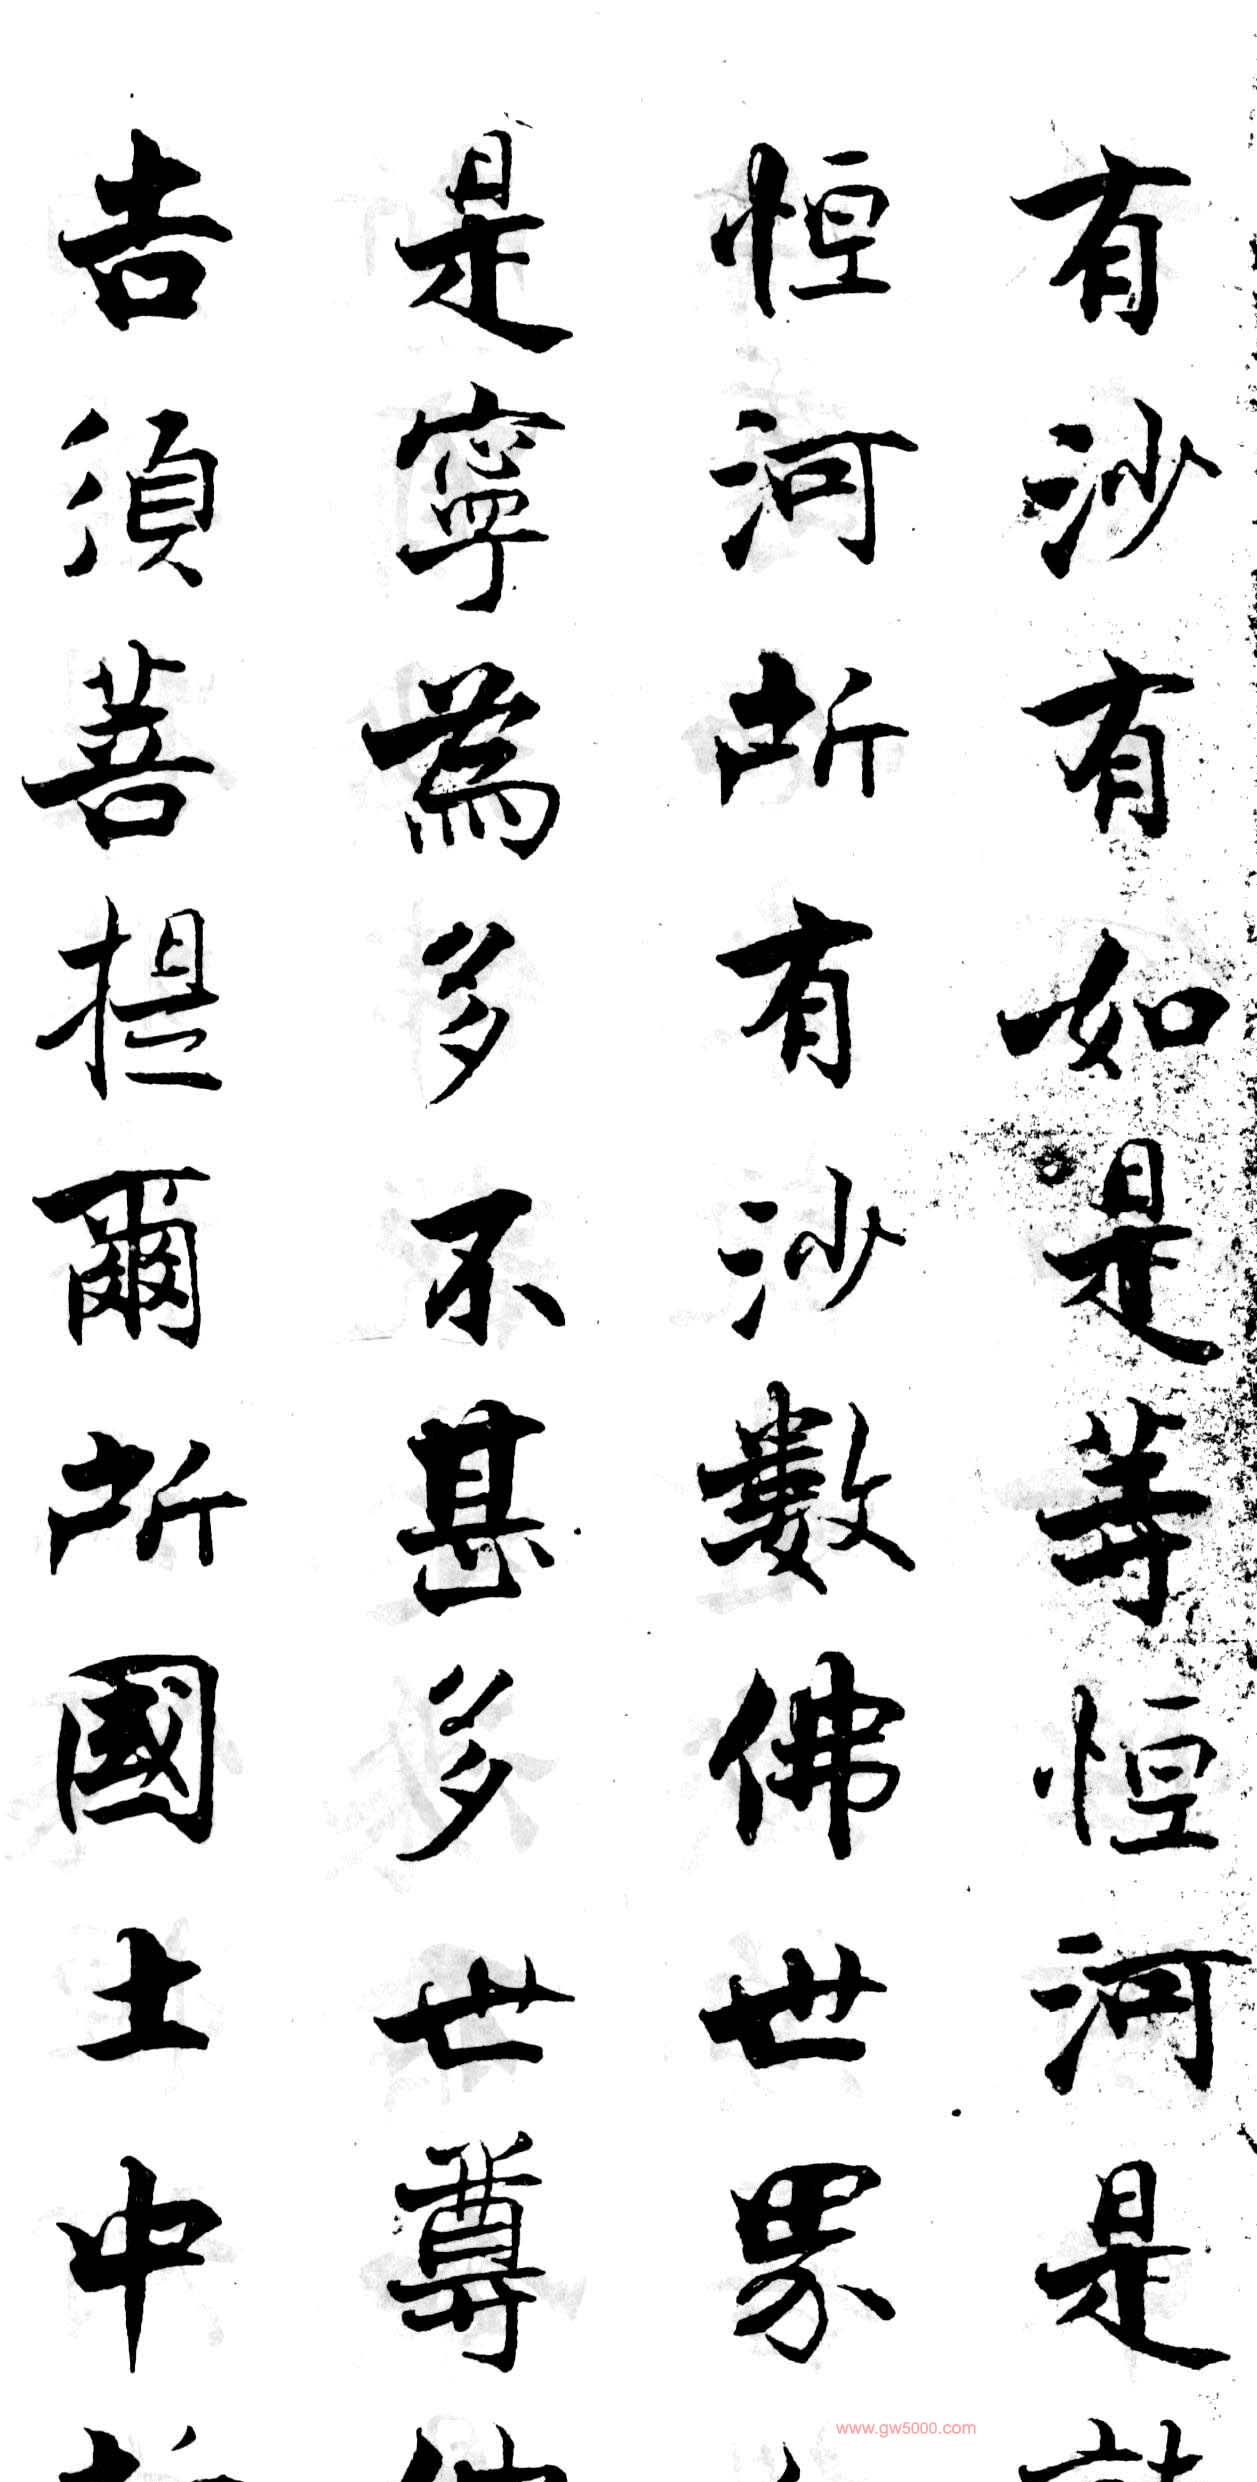 有沙有如是等恒河是
恒河所有沙數佛世界
是寧為多不甚多世尊
告須菩提爾所國土中
www.gw5000.com